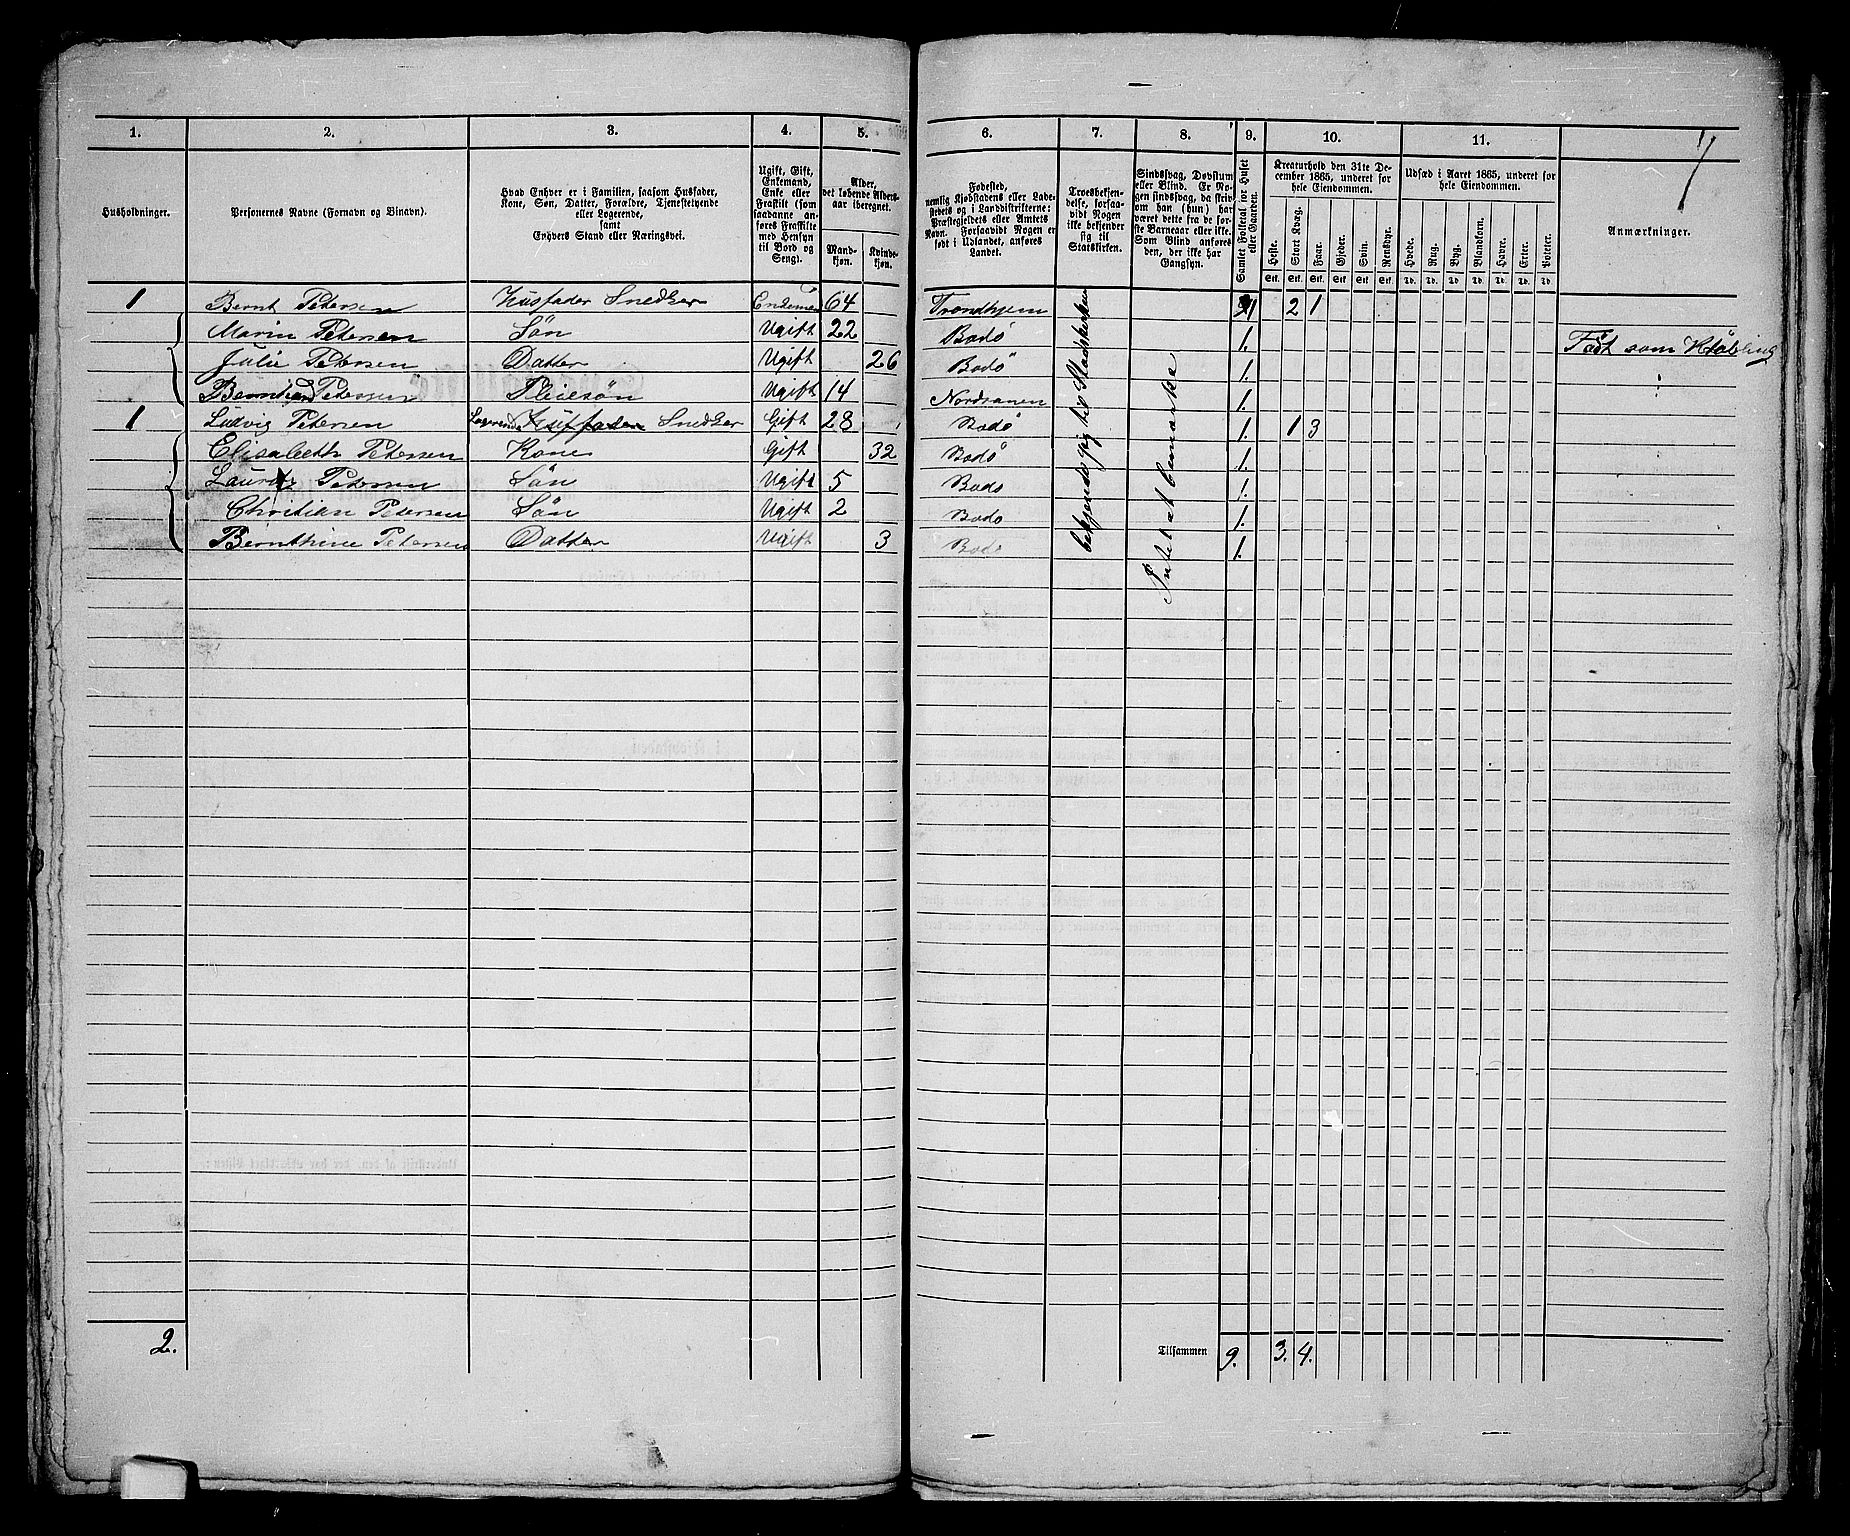 7
1. 2. 3. 4. 5. 6. 7. 8. 9. 10. 11.
Husholdninger.
Personernes Navne (Fornavn og Binavn).
Hvad Enhver er i Familien, saasom Husfader,
Kone, Søn, Datter, Forældre, Tjenestetyende
eller Logerende,
samt
Enhvers Stand eller Næringsvei.
Ugift, Gift,
Enkemand,
Enke eller
Fraskilt (som
saadanne an-
føres Fraskilte
med Hensyn
til Bord og
Seng).
Alder,
det løbende Alders-
aar iberegnet.
Mand-
kjøn.
Kvinde-
kjøn.
Fødested,
nemlig Kjøbstadens eller Lade-
stedets og i Landdistrikterne:
Præstegjeldets eller Amtets
Navn. Forsaavidt Nogen er
født i Udlandet, anføres
Landet.
Troesbekjen-
delse, forsaa-
vidt Nogen
ikke bekjender
sig til
Statskirken.
Sindssvag, Døvstum
eller Blind. Er No-
gen sindssvag, da skriv
om han (hun) har
været dette fra de før-
ste Barneaar eller ikke.
Som Blind anføres
den, der ikke har
Gangsyn.
Samlet Folketal for Huset
eller Gaarden.
Kreaturhold den 31te De-
cember 1865, underet for
hele Eiendommen.
Heste. Stort Kvæg. Faar. Gjeder. Svin. Rensdyr.
Stk. Stk. Stk. Stk. Stk. Stk.
Udsæd i Aaret 1865, underet for
hele Eiendommen.
Hvede. Rug. Byg. Blandkorn. Havre. Erter. Poteter.
Td. Td. Td. Td. Td. Td. Td.
Anmærkninger.
1 Bernt Petersen Husfader Snedker 64 Trondhjem 1 2 1
Marin Petersen Søn Ugift 22 Bodø 1.
Julie Petersen Datter Ugift 26 Bodø 1. Født som Tvilling
Petersen Pleiesøn Ugift 14 Nordranen 1.
1 Ludvig Petersen Logerende Husfader Snedker Gift 28 Bodø 1. 1 3
Elisabeth Petersen Kone Gift 32 Bodø 1.
Lauritz Petersen Søn Ugift 5 Bodø 1.
Christian Petersen Søn Ugift 2 Bodø 1.
Bernthine Petersen Datter Ugift 3 Bodø 1.
bekjende sig til Statskirken
Intet at bemærke
2. Tilsammen 9. 3. 4.